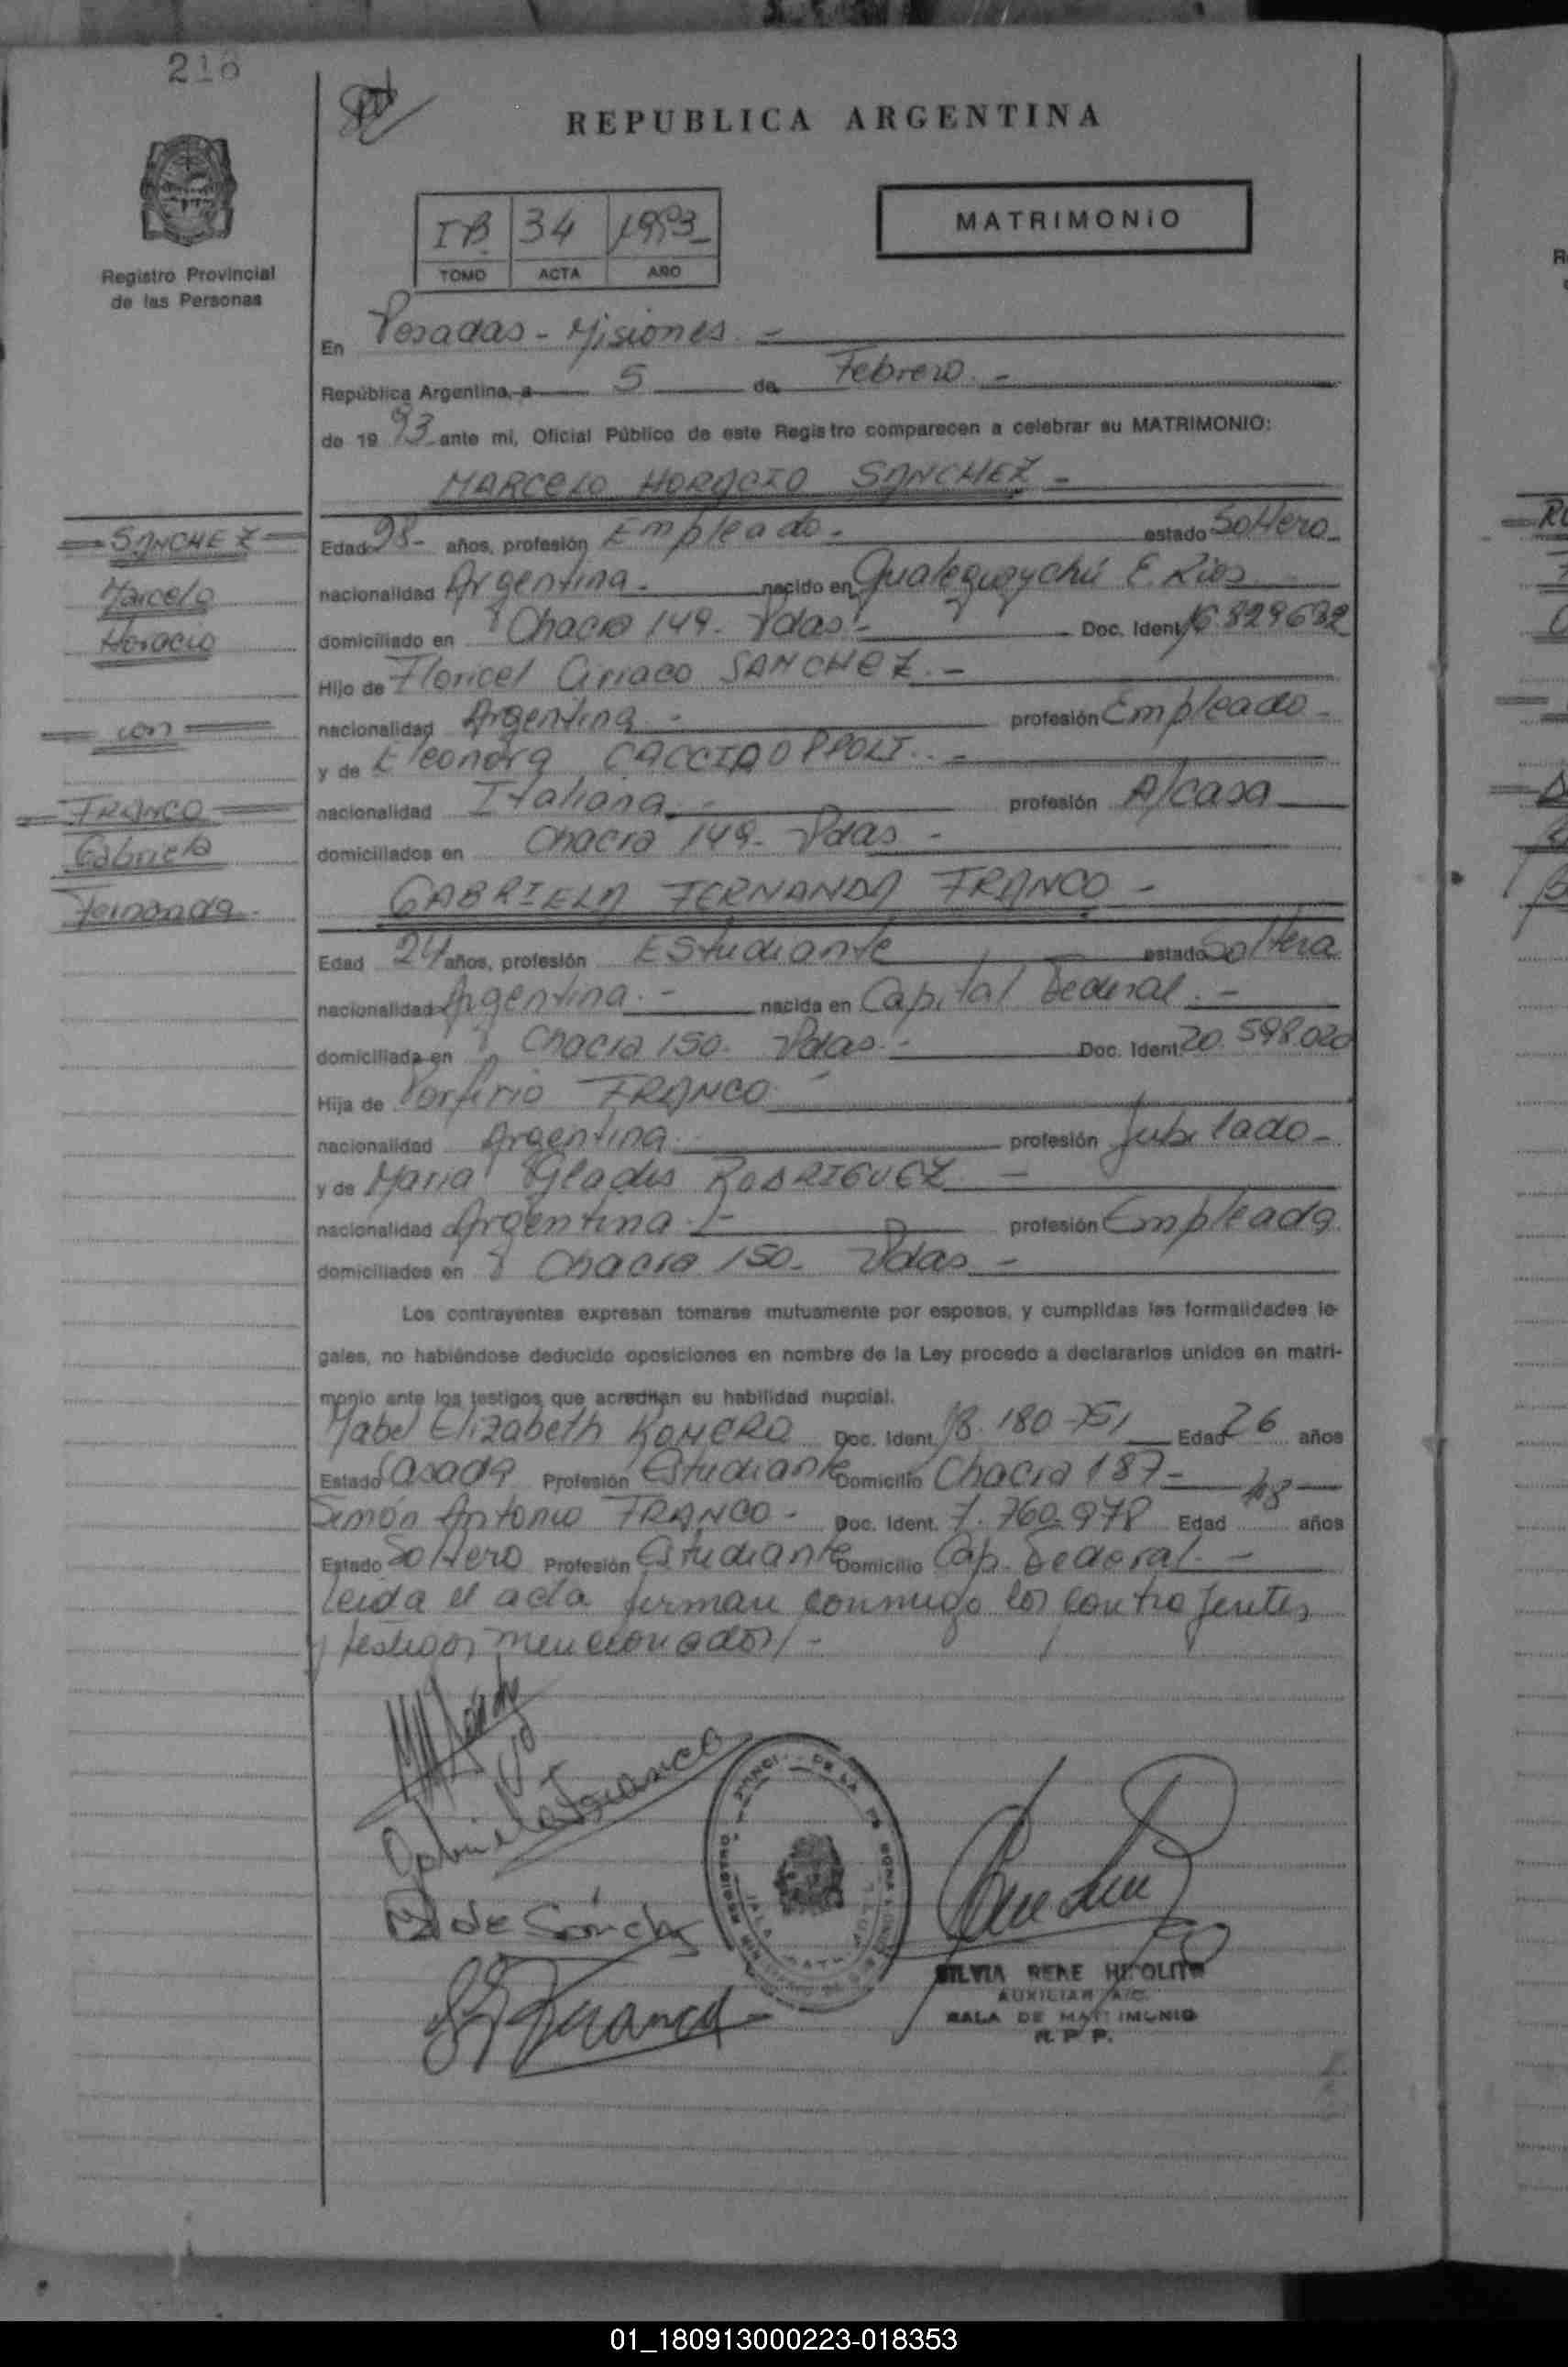 216
REPUBLICA ARGENTINA
Registro Provincial
de las Personas
IB 34 1993
TOMO ACTA AÑO
MATRIMONIO
En Posadas - Misiones. -
República Argentina, a 5 de Febrero. -
de 19 93 ante mi, Oficial Público de este Registro comparecen a celebrar su MATRIMONIO:
MARCELO HORACIO SANCHEZ -
SANCHEZ
Marcelo
Horacio
con
FRANCO
Gabriela
Fernanda.
Edad 28- años, profesión Empleado. - estado Soltero
nacionalidad Argentina. - nacido en Gualeguaychú E. Rios
domiciliado en Chacra 149. Pdas. - Doc. Ident. 16.829.632
Hijo de Floricel Ciriaco SANCHEZ. -
nacionalidad Argentina - profesión Empleado -
y de Eleonora CACCIAOPPOLI. -
nacionalidad Italiana. - profesión A/casa
domiciliados en Chacra 149. Pdas -
GABRIELA FERNANDA FRANCO -
Edad 24 años, profesión Estudiante estado Soltera
nacionalidad Argentina. - nacida en Capital Federal. -
domiciliada en Chacra 150. Pdas. - Doc. Ident. 20.598.020
Hija de Porfirio FRANCO
nacionalidad Argentina. profesión Jubilado -
y de Maria Gladis RODRIGUEZ -
nacionalidad Argentina. - profesión Empleada
domiciliados en Chacra 150. Pdas -
Los contrayentes expresan tomarse mutuamente por esposos, y cumplidas las formalidades le-
gales, no habiéndose deducido oposiciones en nombre de la Ley procedo a declararlos unidos en matri-
monio ante los testigos que acreditan su habilidad nupcial.
Mabel Elizabeth ROMERO Doc. Ident. 18.180.751 Edad 26 años
Estado Casada Profesión Estudiante Domicilio Chacra 187 -
Simón Antonio FRANCO - Doc. Ident. 7.760.978 Edad 48 años
Estado Soltero Profesión Estudiante Domicilio Cap. Federal. -
leida el acta firman conmigo los contrayentes
y testigos mencionados/-
Gabriela Franco
de Sánchez
Franco
SILVIA RENE HIPOLITO
AUXILIAR A/C.
SALA DE MATRIMONIO
R. P. P.
01_180913000223-018353